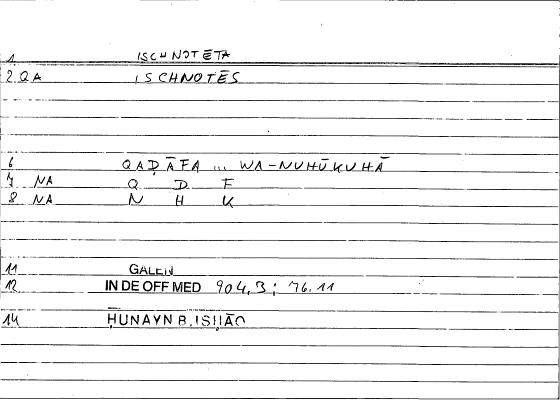 1 ISCHNOTĒTA
2 QA ISCHNOTĒS
6 QAḌĀFA ... WA-NUHŪKUHĀ
7 NA Q D F
8 NA N H K
11 GALEN
12 IN DE OFF MED 904,3; 76.11
14 ḤUNAYN B. ISḤĀQ